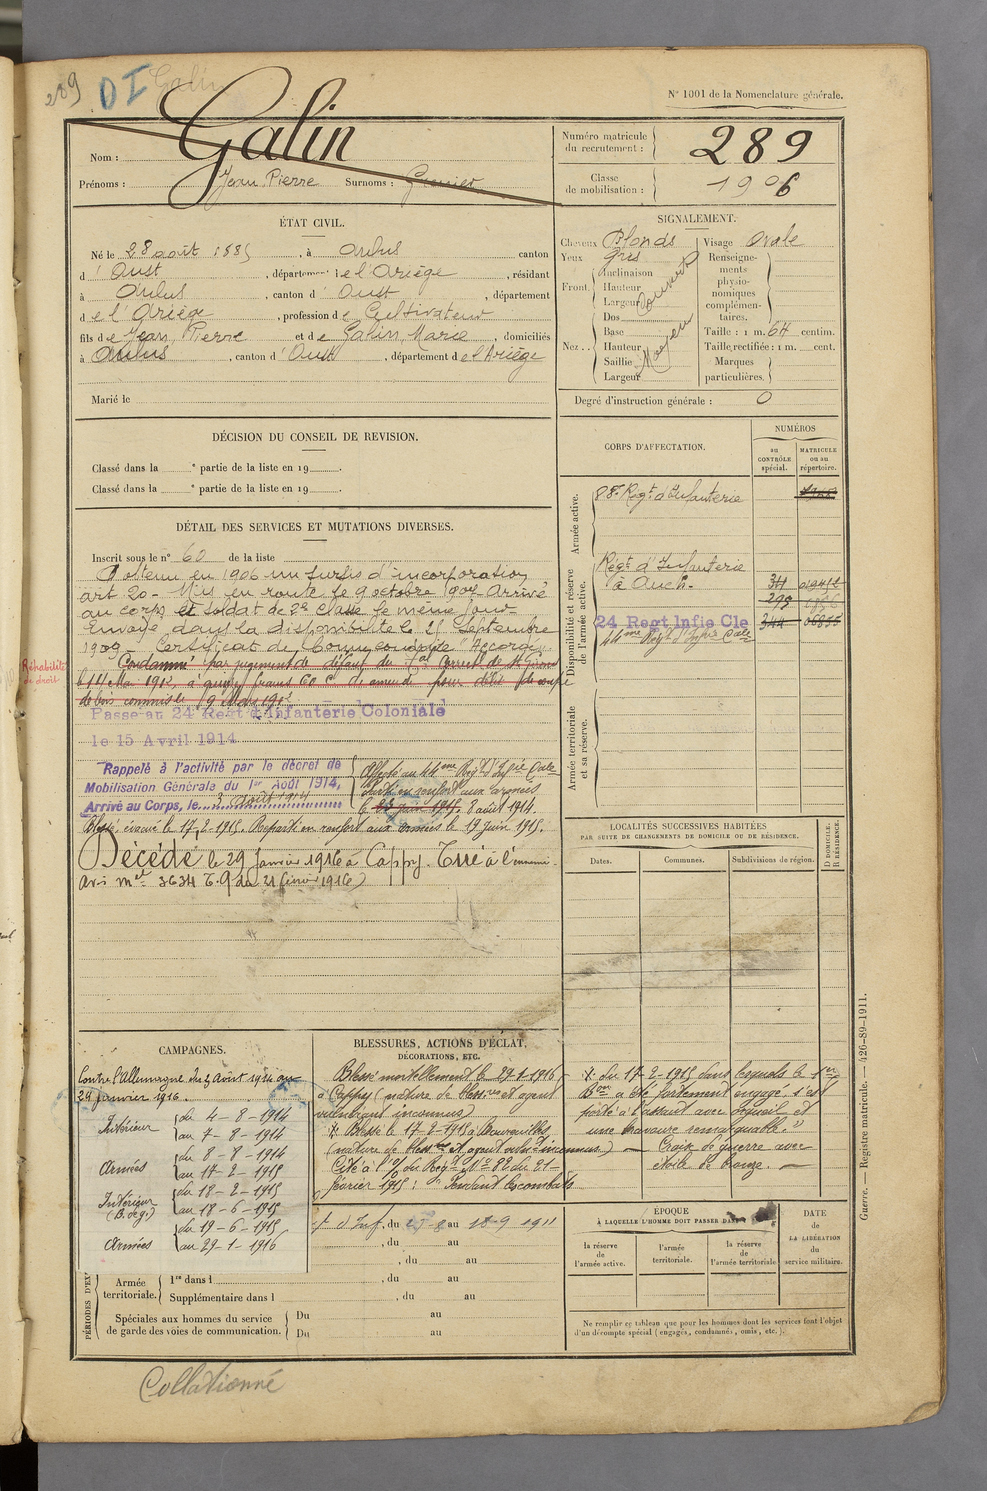 289
DI
Galin
N° 1001 de la Nomenclature générale.
Nom : Galin
Prénoms : Jean Pierre Surnoms : Grenier
Numéro matricule du recrutement : 289
Classe de mobilisation : 1906
ÉTAT CIVIL.
Né le 28 août 1885, à Aulus canton
d'Oust, département de l'Ariège, résidant
à Aulus, canton d'Oust, département
de l'Ariège, profession de Cultivateur
fils de Jean Pierre et de Galin Marie, domiciliés
à Aulus, canton d'Oust, département de l'Ariège
Marié le
SIGNALEMENT.
Cheveux Blonds Visage Ovale
Yeux Gris
Front. Inclinaison
Hauteur
Largeur
Couvert
Nez.. Dos
Base
Hauteur
Saillie
Largeur
Moyen
Renseignements physionomiques complémentaires.
Taille : 1 m. 64 centim.
Taille rectifiée : 1 m. cent.
Marques particulières.
Degré d'instruction générale : 0
DÉCISION DU CONSEIL DE REVISION.
Classé dans la e partie de la liste en 19 .
Classé dans la e partie de la liste en 19 .
CORPS D'AFFECTATION.
NUMÉROS
au CONTRÔLE spécial.
MATRICULE ou au répertoire.
Armée active.
88e Régt d'Infanterie
Disponibilité et réserve de l'armée active.
Régt d'Infanterie
à Auch.
295
24 Regt Infie Cle
344
44me Régt d'Infie Cale
Armée territoriale et sa réserve.
DÉTAIL DES SERVICES ET MUTATIONS DIVERSES.
Inscrit sous le n° 60 de la liste
Obtenu en 1906 un sursis d'incorporation
art 20 - Mis en route le 9 octobre 1907 Arrivé
au corps et soldat de 2e classe le même jour
Envoyé dans la disponibilité le 25 Septembre
1909 - Certificat de Bonne conduite "Accordé"
Réhabilité de droit
Condamné par jugement de défaut du Tal Correct. de St Girons
le 14 Mai 1912, à quinze francs 60 c. de amende pour délit de coupe
de bois commis le 9 Mars 1912
Passé au 24 Régt d'Infanterie Coloniale
le 15 Avril 1914
Rappelé à l'activité par le décret de
Mobilisation Générale du 1er Août 1914,
Arrivé au Corps, le 3 août 1914
Affecté au 44me Régt d'Infie Cale
Parti en renfort aux armées
le 8 août 1914.
Blessé, évacué le 17-2-1915. Reparti en renfort aux armées le 19 juin 1915.
Décédé le 29 janvier 1916 à Cappy. Tué à l'ennemi.
Avis mel 3634 E.9 du 21 février 1916)
LOCALITÉS SUCCESSIVES HABITÉES
PAR SUITE DE CHANGEMENTS DE DOMICILE OU DE RÉSIDENCE.
Dates.
Communes.
Subdivisions de région.
D DOMICILE. R RÉSIDENCE.
CAMPAGNES.
Contre l'Allemagne du 4 Août 1914 au
29 janvier 1916.
Intérieur du 4-8-1914
au 7-8-1914
Armées du 8-8-1914
au 17-2-1915
Intérieur (B. de g.) du 18-2-1915
au 18-6-1915
Armées du 19-6-1915
au 29-1-1916
BLESSURES, ACTIONS D'ÉCLAT,
DÉCORATIONS, ETC.
Blessé mortellement le 29-1-1916
à Cappy (nature de blessures et agent
vulnérant inconnus)
Blessé le 17-2-1915 à Beauséjour
(nature de blessures et agent vulnt inconnus)
Cité à l'o/ du Régt N° 82 du 21
février 1915 : "Pendant les combats
du 17-2-1915 dans lesquels le 1er
Bon a été fortement engagé, s'est
porté à l'assaut avec orgueil et
une bravoure remarquable."
Croix de guerre avec
étoile de bronze.
d'Inf. du 25-8 au 18-9 1911
, du au
, du au
Armée territoriale. 1re dans l , du au
Supplémentaire dans l , du au
Spéciales aux hommes du service de garde des voies de communication. Du au
Du au
ÉPOQUE
À LAQUELLE L'HOMME DOIT PASSER DANS
la réserve de l'armée active.
l'armée territoriale.
la réserve de l'armée territoriale
DATE de LA LIBÉRATION du service militaire.
Ne remplir ce tableau que pour les hommes dont les services font l'objet d'un décompte spécial (engagés, condamnés, omis, etc.).
Guerre. — Registre matricule. — 426-89-1911.
Collationné